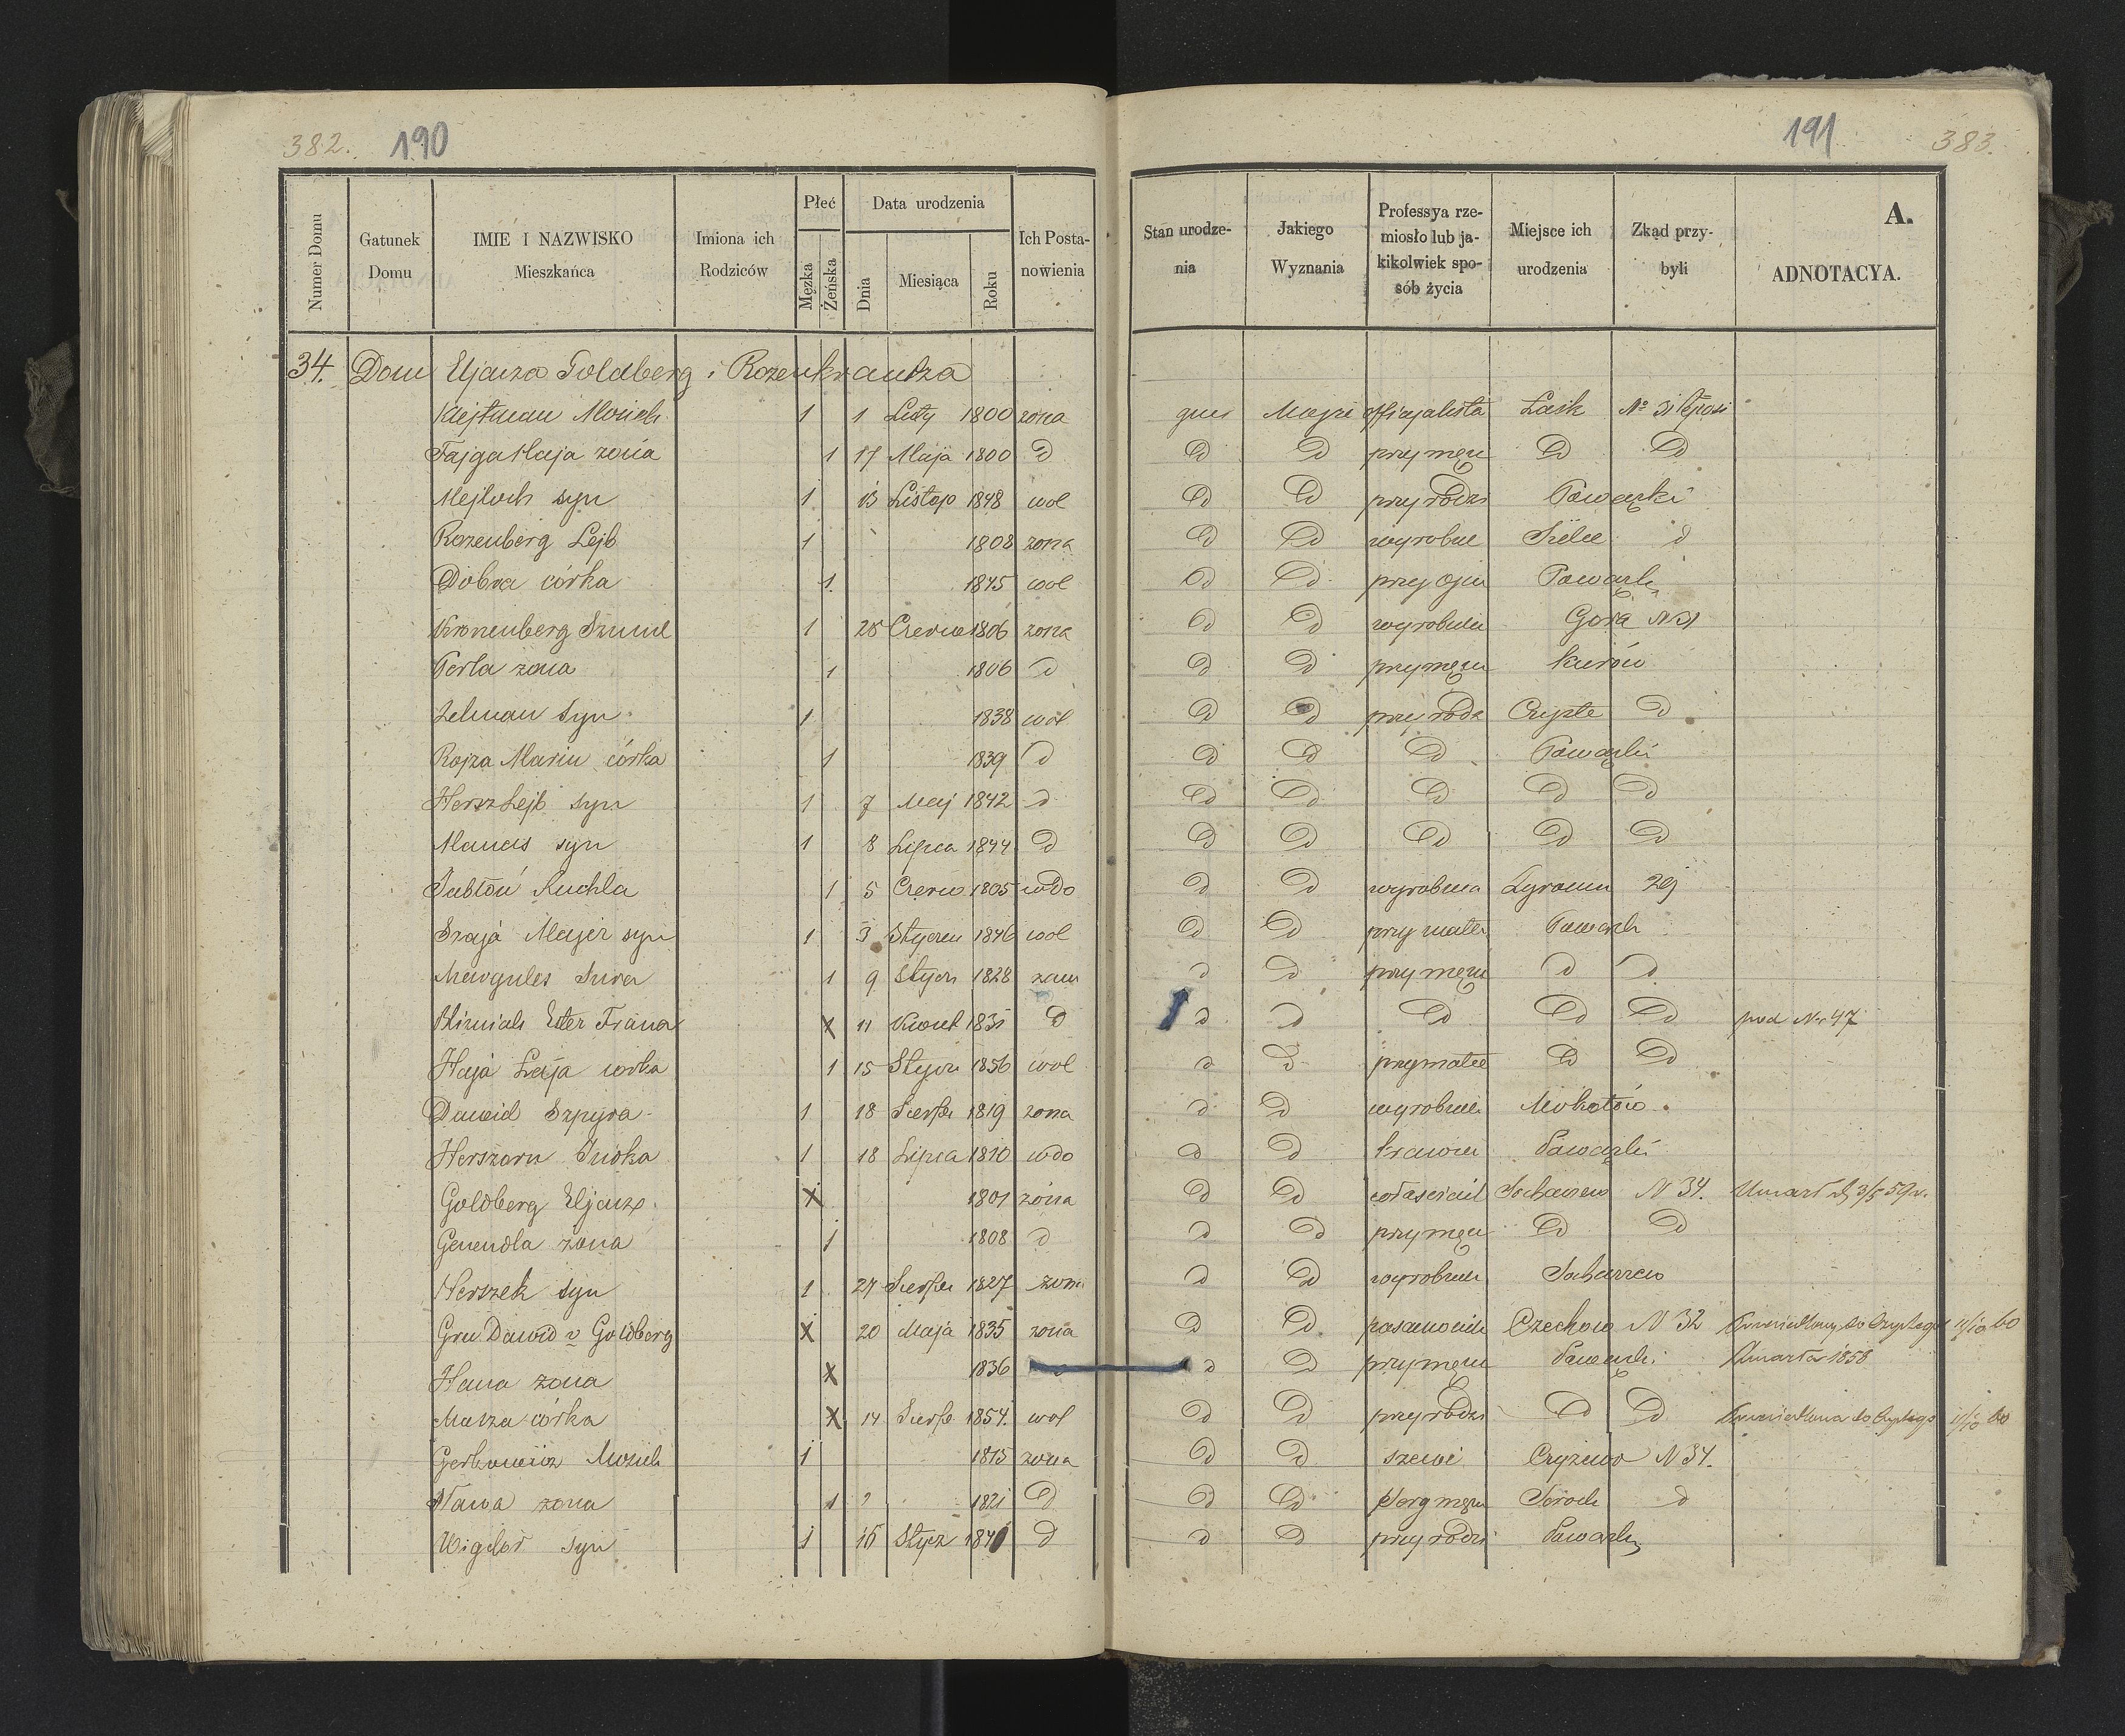 382. 190
Numer Domu
Gatunek Domu
IMIE I NAZWISKO Mieszkańca
Imiona ich Rodziców
Płeć
Męzka
Żeńska
Data urodzenia
Dnia
Miesiąca
Roku
Ich Postanowienia
34. Dom Eljasza Goldberg i Rozenkrantza
1 1 Listy 1800 żona
Fajga Haja żona 1 17 Maja 1800 D
Mejloch syn 1 13 Listop 1848 wol
Rozenberg Lejb 1 1808 zona
Dobra córka 1 1845 wol
Kronenberg Szmul 1 28 Czerwc 1806 zona
Perla zona 1 1806 D
Zelman syn 1 1838 wol
Rojza Mariu córka 1 1839 D
Hersz Lejb syn 1 7 Maj 1842 D
Manas syn 1 8 Lipca 1844 D
Jabłoń Ruchla 1 5 Czerw 1805 wdo
Szaja Majer syn 1 3 Stycznia 1846 wol
Margules Sura 1 9 Stycz 1828 zam
Ester Frana X 11 Kwiet 1835 D
Haja Łaja corka 1 15 Stycz 1856 wol
Dawid Szpyra 1 18 Sierp 1819 zona
Herszorn 1 18 Lipca 1810 wdo
Goldberg Eljasz X 1801 żona
Genendla żona 1 1808 D
Herszek syn 1 27 Sierp 1827 zona
Dawid v Goldberg X 20 Maja 1835 zona
Hana zona X 1836
Masza córka X 14 Sierp 1854. wol
Moziek 1 1815 zona
zona 1 1821 D
Wigdor syn 1 15 Stycz 1840 D
191 383.
Stan urodzenia
Jakiego Wyznania
Professya rzemiosło lub jakikolwiek sposób życia
Miejsce ich urodzenia
Zkąd przybyli
A.
ADNOTACYA.
gmi Mojże offiyalista Łask Nº 31
D D przy mężu D D
D D przy rodzi Powązki
D D wyrobni D
D D przy ojcu Powązki
D D wyrobnik Gora N 31
D D przy mężu Kurów
D D przy rodz Czyste D
D D D Powązki
D D D D D
D D D D D
D D wyrobnica 29
D D przy matce Powązki
D D przy mężu D D
D D D D D pod Nr 47
D D przy matce D D
D D wyrobnik Mokotów
D D krawiec Powązki
D D właściciel Sochaczew N 34. Umarł d. 3/5 59 r.
D D przy mężu D D
D D wyrobnik Sochaczew
D D Czechow N 32 11/10 60
D D przy mężu Powązki Umarła 1858
D D przy rodzi D D 11/10 60
D D szewc N 34.
D D przy mężu Serock D
D D przy rodzi Powązki